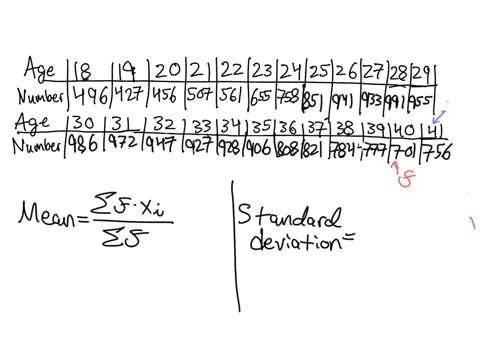 Age 18 19 20 21 22 23 24 25 26 27 28 29
Number 496 427 456 507 561 655 758 851 941 933 991 955
Age 30 31 32 33 34 35 36 37 38 39 40 41
Number 986 972 947 927 928 906 808 821 784 777 701 756
f
Mean = Σf·xi / Σf
Standard
deviation=